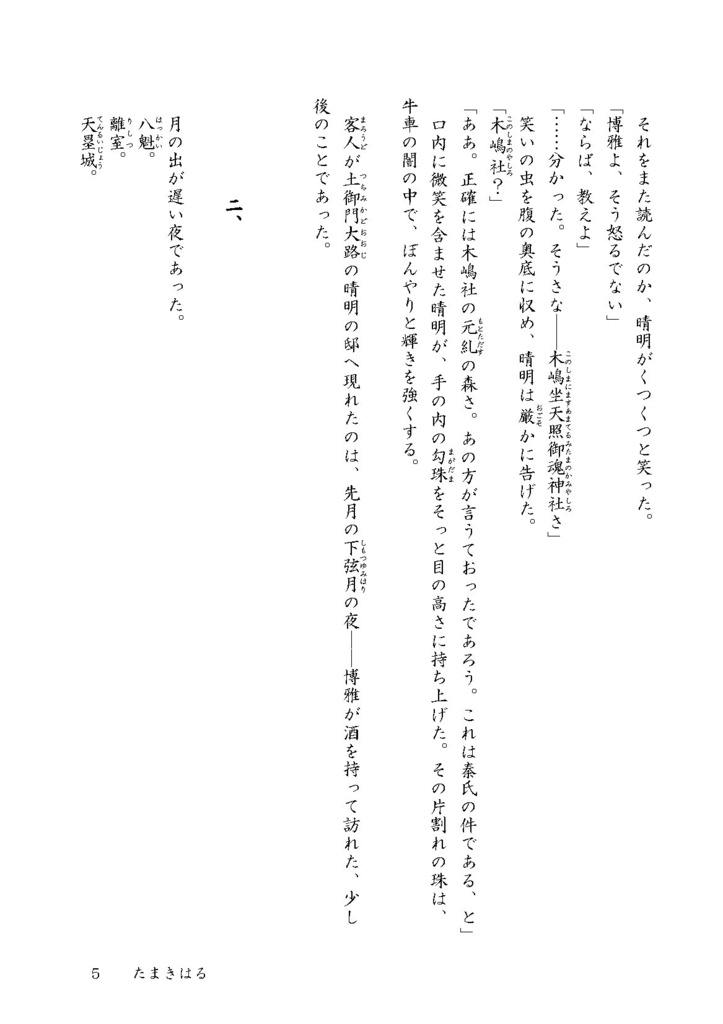 それをまた読んだのか、晴明がくつくつと笑った。
「博雅よ、そう怒るでない」
「ならば、教えよ」
「……分かった。そうさな――木嶋坐天照御魂神社さ」
笑いの虫を腹の奥底に収め、晴明は厳かに告げた。
「木嶋社?」
「ああ。正確には木嶋社の元糺の森さ。あの方が言うておったであろう。これは秦氏の件である、と」
口内に微笑を含ませた晴明が、手の内の勾珠をそっと目の高さに持ち上げた。その片割れの珠は、
牛車の闇の中で、ぼんやりと輝きを強くする。
客人が土御門大路の晴明の邸へ現れたのは、先月の下弦月の夜――博雅が酒を持って訪れた、少し
後のことであった。
二、
月の出が遅い夜であった。
八魁。
離室。
天塁城。
5 たまきはる